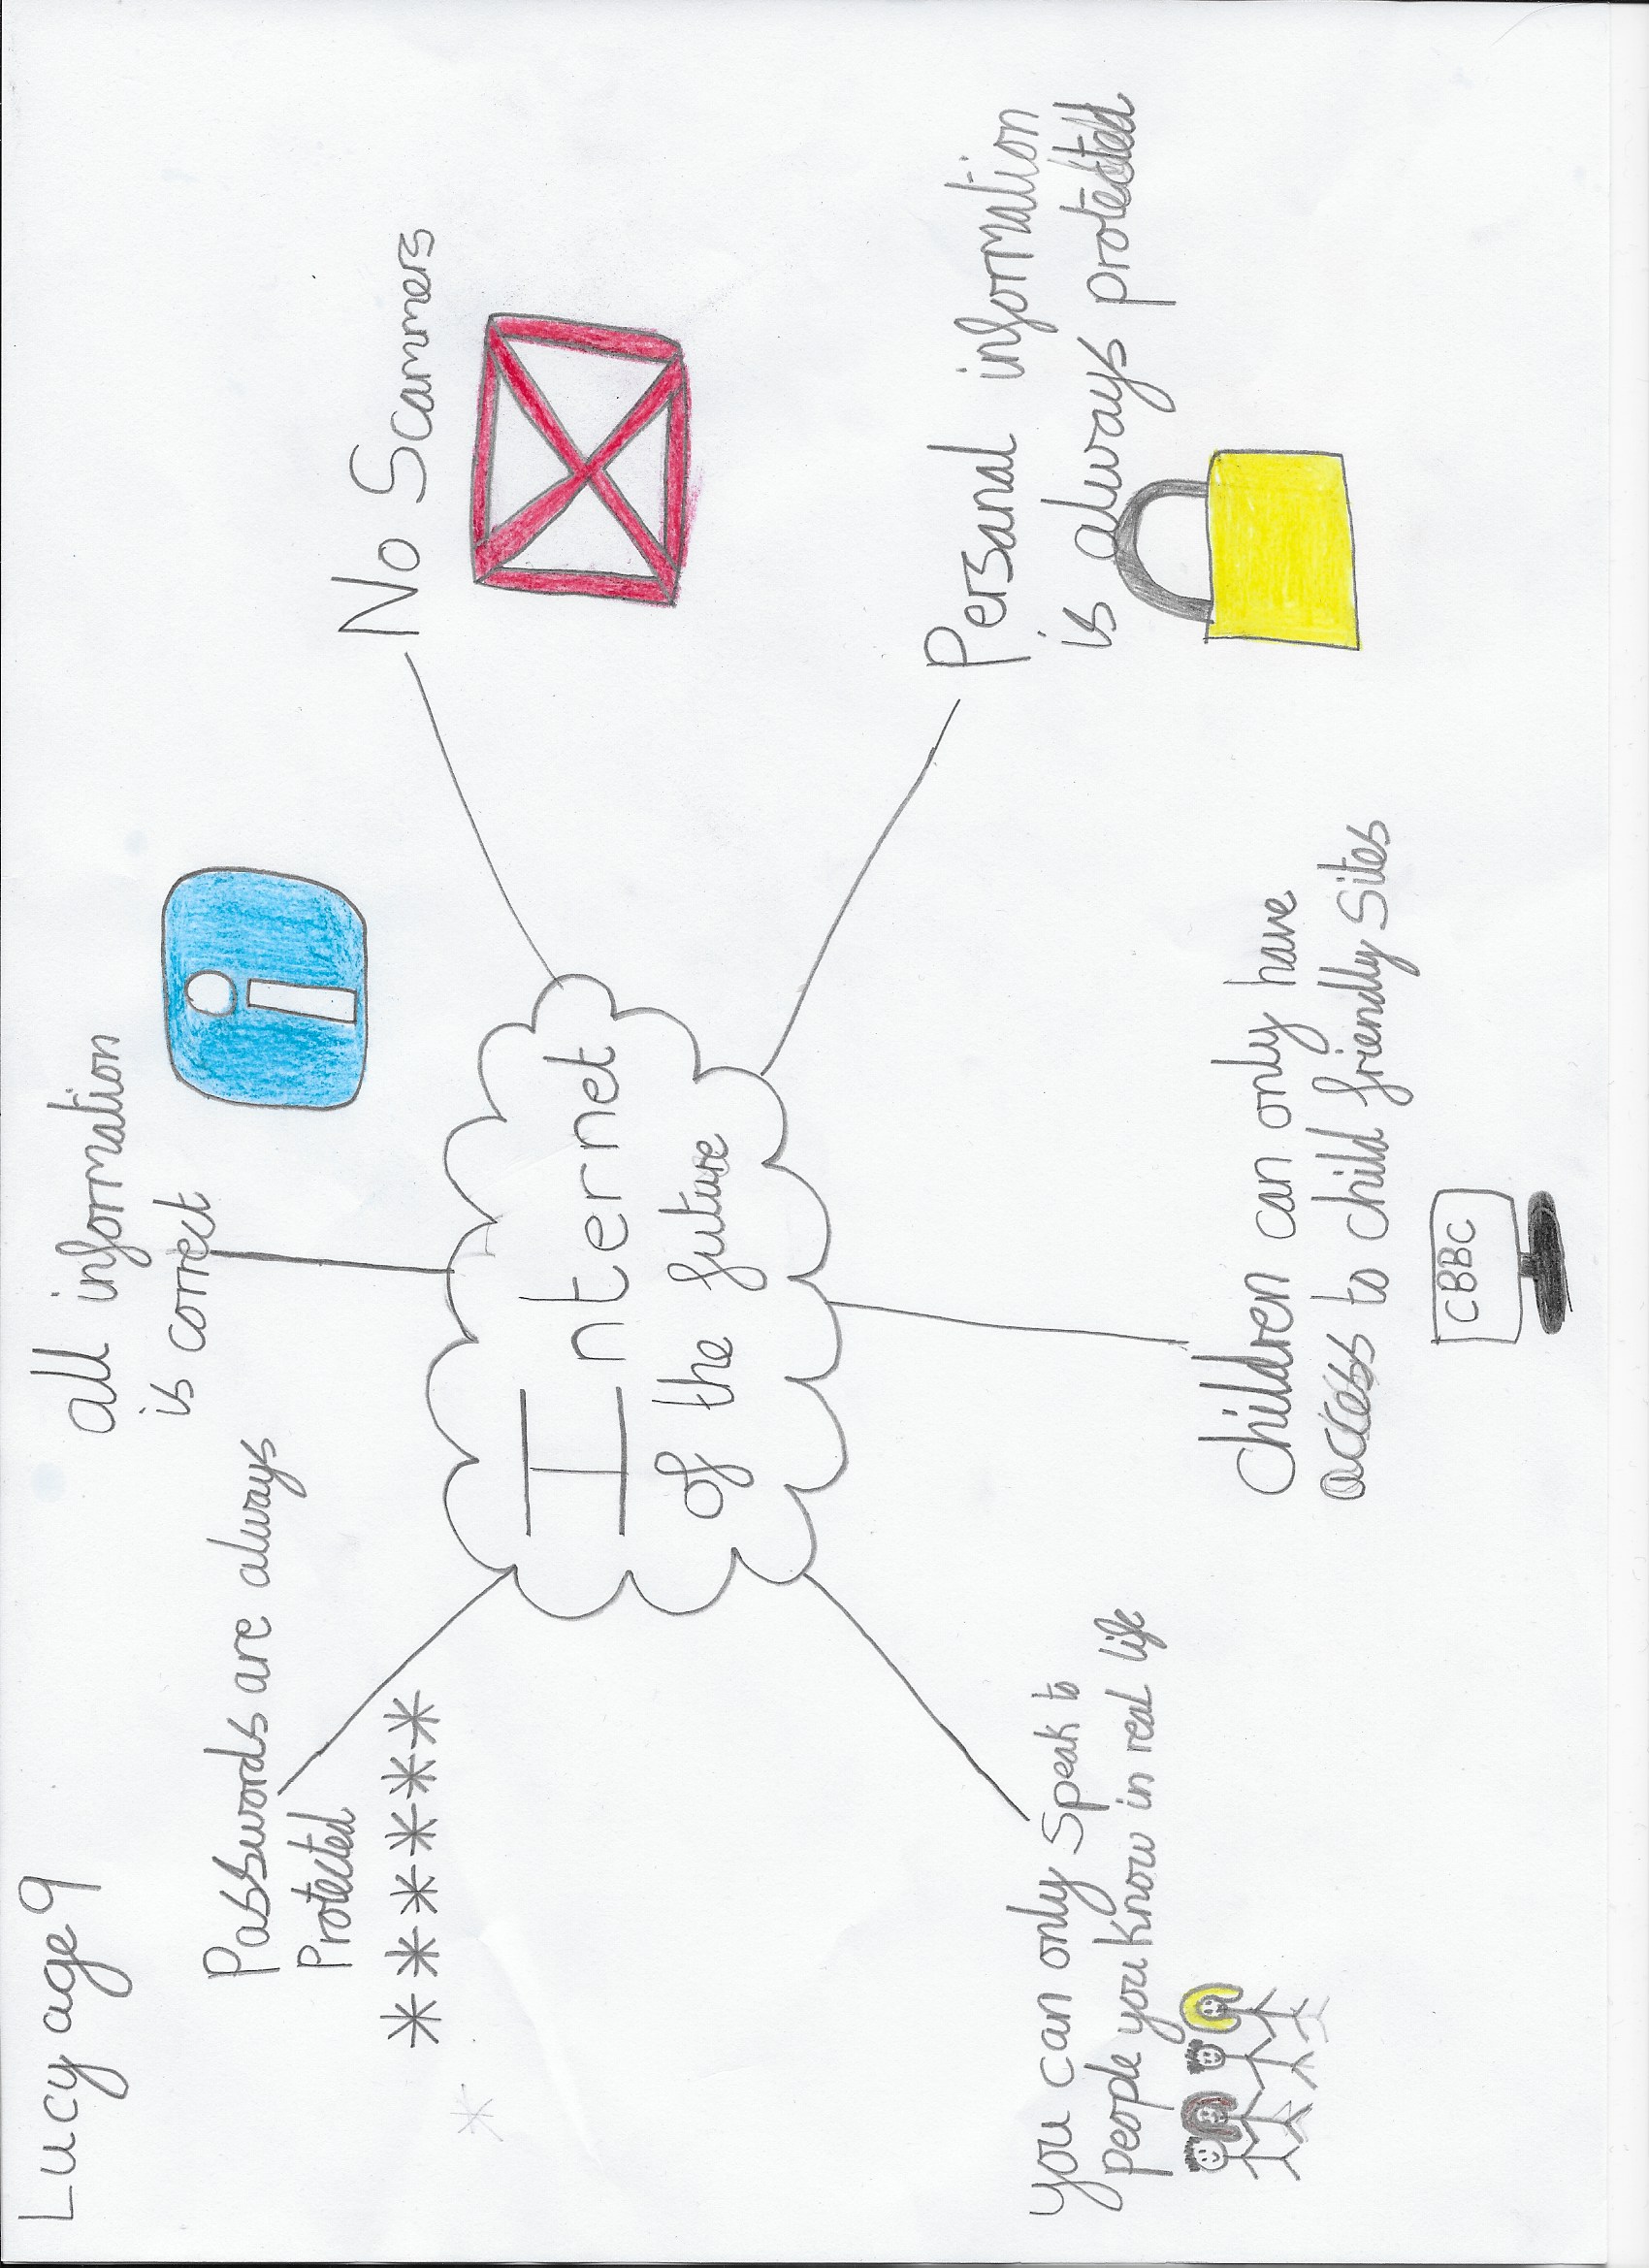 Lucy age 9
Passwords are always
Protected
******
all information
is correct
i
No Scammers
Internet
of the future
Personal information
is always protected
children can only have
access to child friendly Sites
CBBC
you can only speak to
people you know in real life